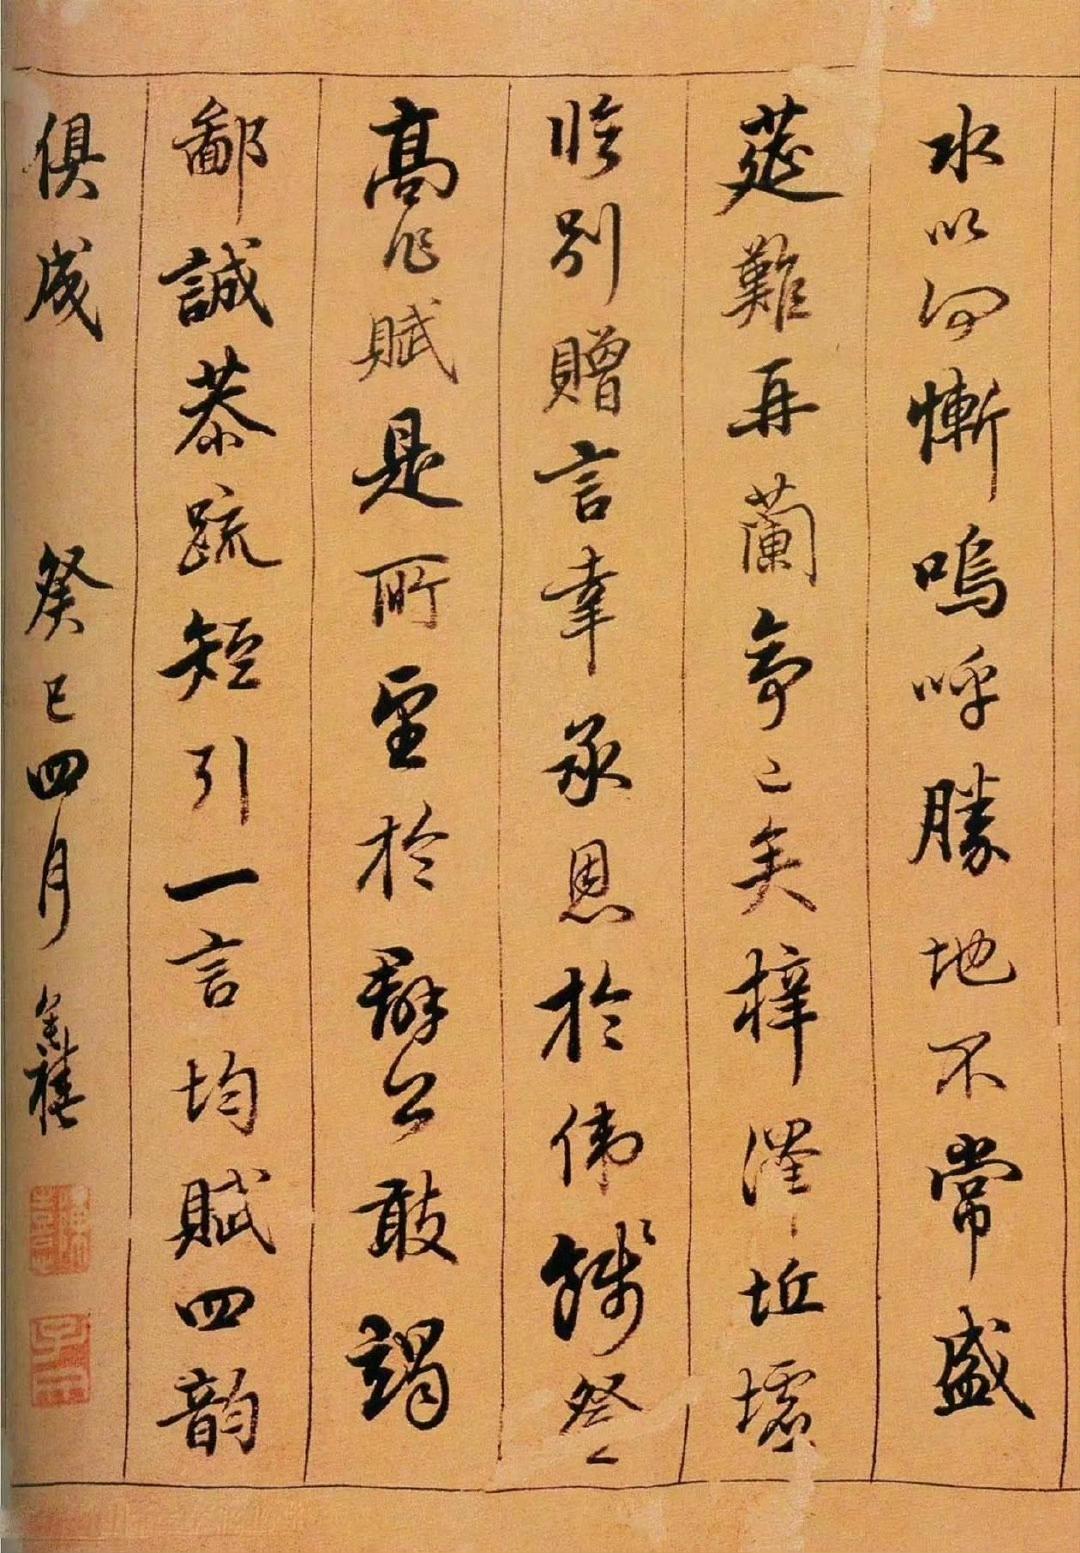 水以何慚嗚呼勝地不常盛
莚難再蘭亭已矣梓澤坵墟
臨別贈言幸承恩於偉餞登
高作賦是所望於群公敢竭
鄙誠恭疏短引一言均賦四韻
俱成 癸巳四月 奕禧